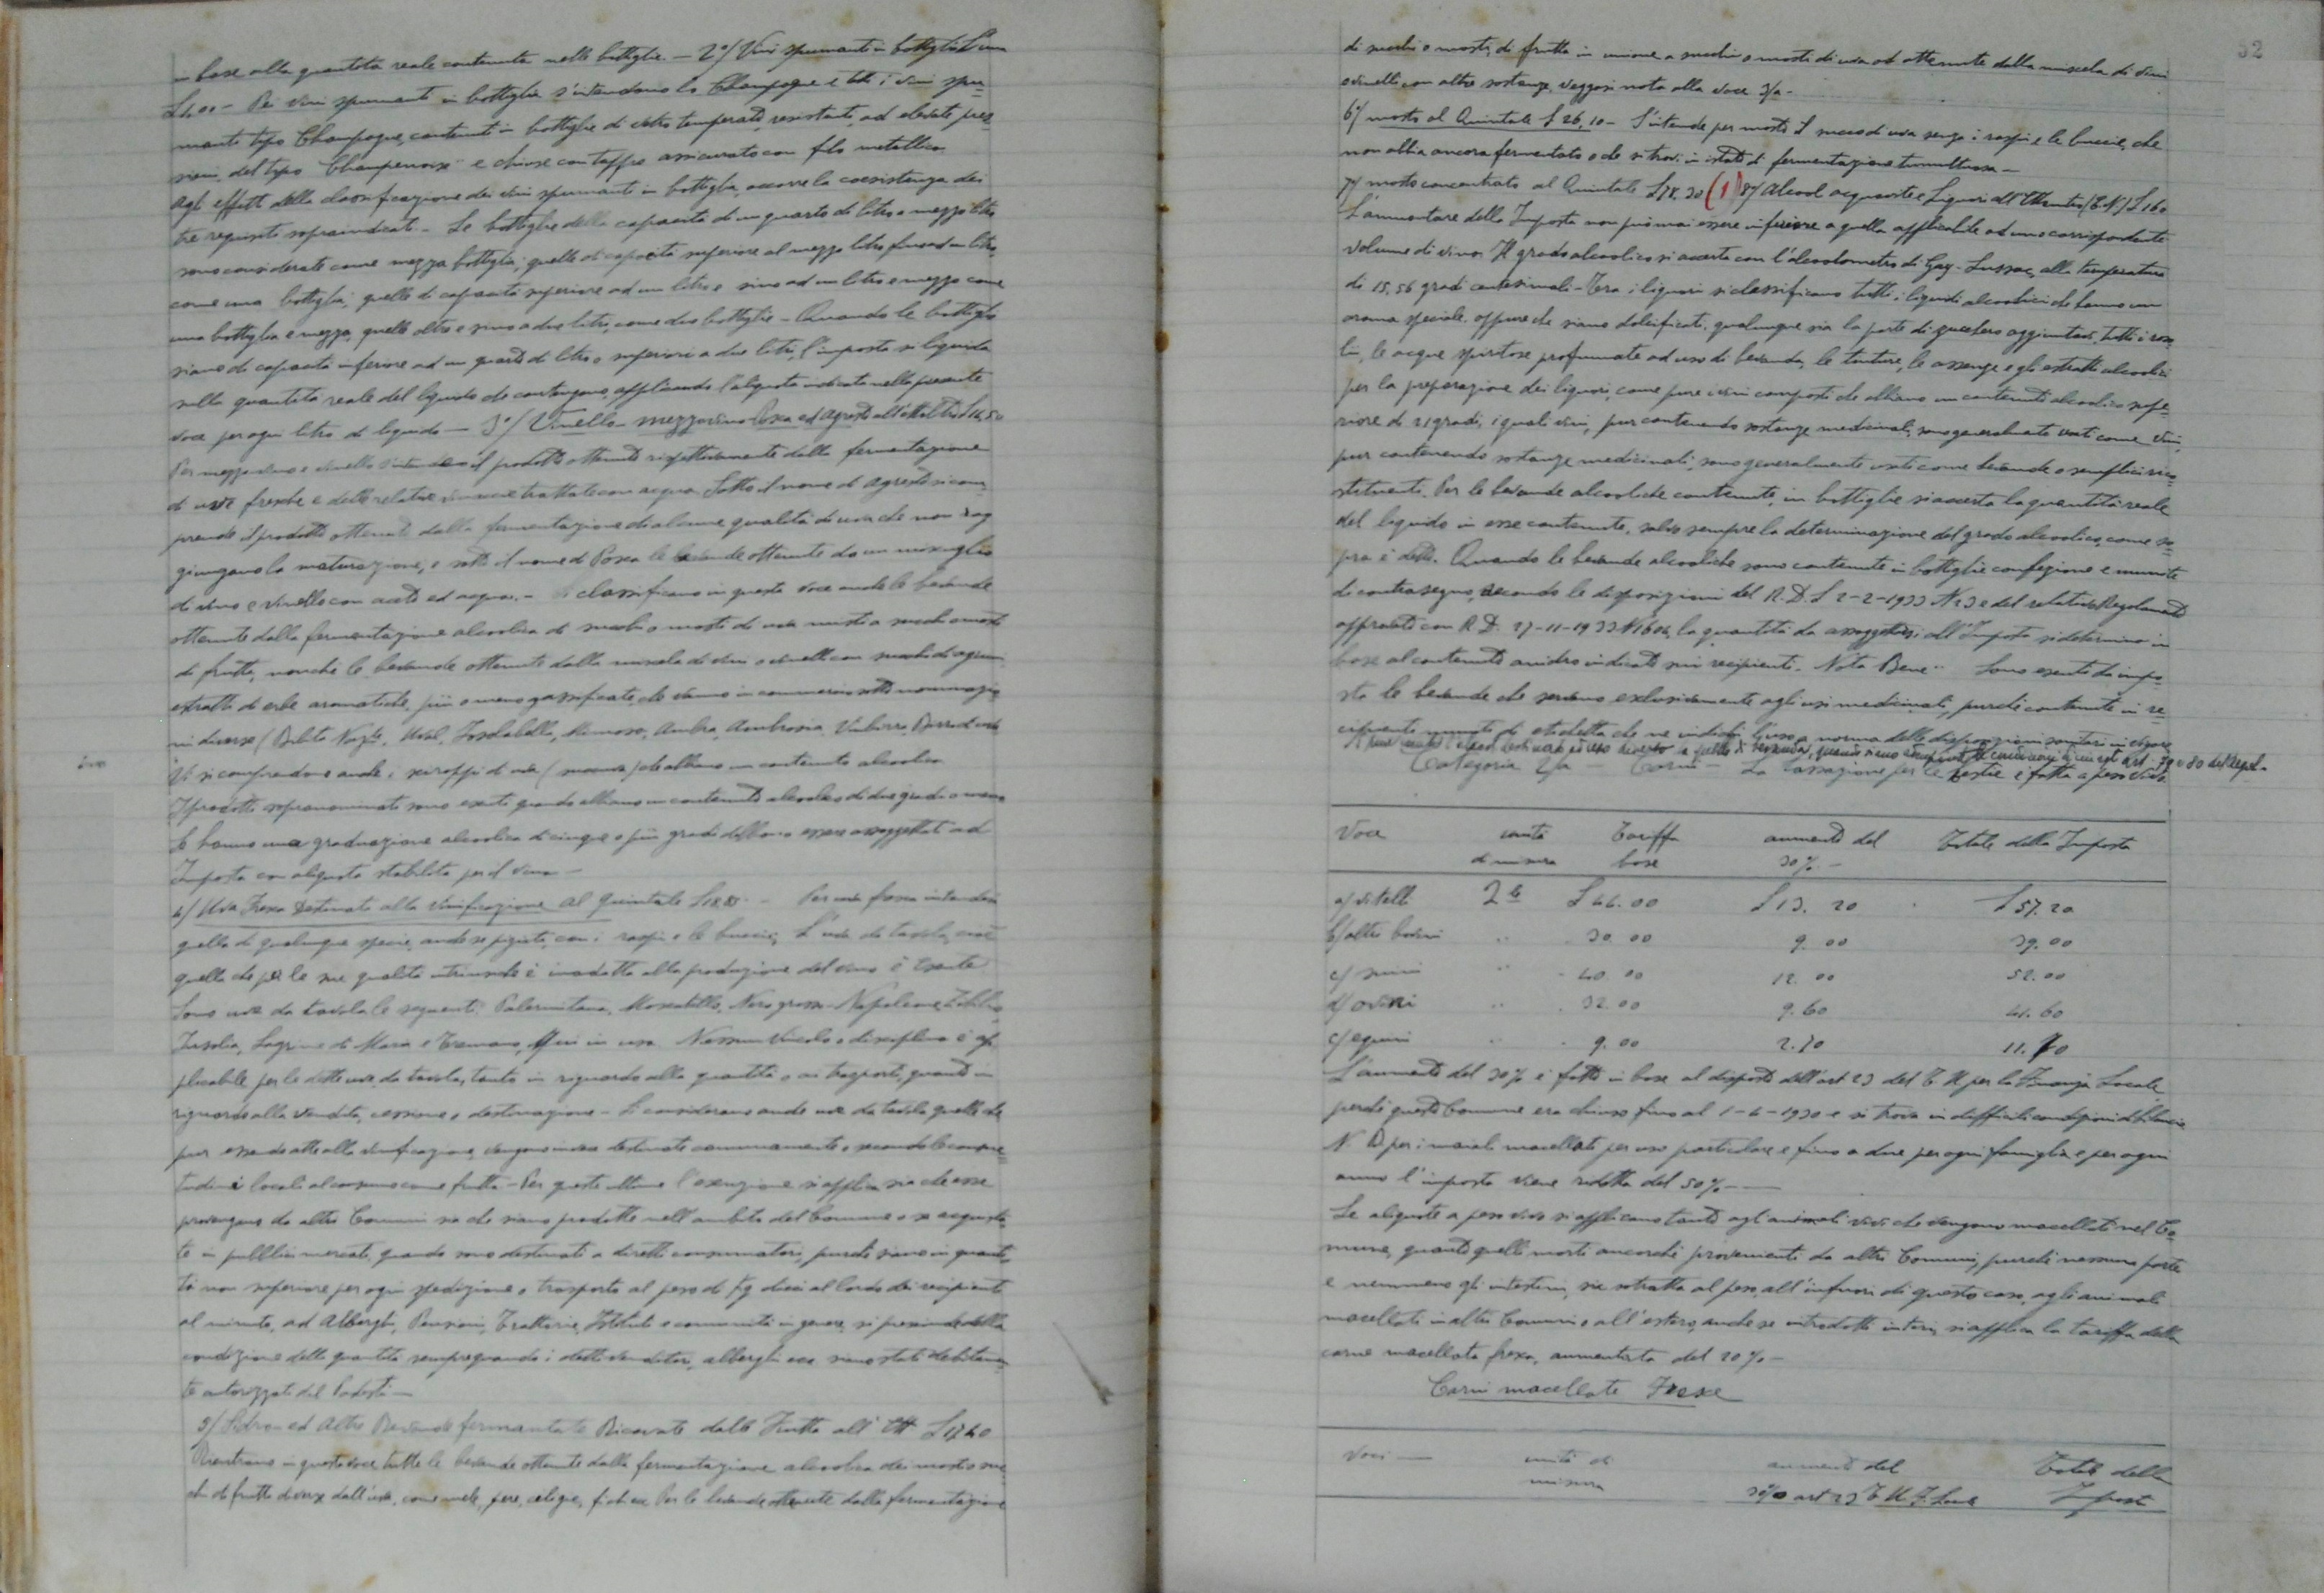 in base alla quantità reale contenuta nelle bottiglie. — 2°/ Vini spumanti in bottiglia L'una
Pei vini spumanti in bottiglia s'intendono lo Champagne e tutti i vini spu-
manti tipo Champagne, contenuti in bottiglie di vetro temperato, resistenti ad elevate pres
sioni, del tipo "Champenoise" e chiuse con tappo assicurato con filo metallico
Agli effetti della classificazione dei vini spumanti in bottiglia, occorre la coesistenza dei
tre requisiti sopraindicati. — Le bottiglie della capacità di un quarto di litro a mezzo litro
sono considerate come mezza bottiglia; quelle di capacità superiore al mezzo litro fino ad un litro,
come una bottiglia; quelle di capacità superiore ad un litro e sino ad un litro e mezzo come
una bottiglia e mezza, quelle oltre e sino a due litri, come due bottiglie — Quando le bottiglie
siano di capacità inferiore ad un quarto di litro o superiori a due litri, l'imposta si liquida
sulla quantità reale del liquido che contengono, applicando l'aliquota indicata nella presente
voce per ogni litro di liquido — 3°/ Vinello - mezzovino Posca ed Agresto all'ettolitro L 14,50
Per mezzovino e vinello s'intendono il prodotto ottenuto rispettivamente dalla fermentazione
di uve fresche e delle relative vinacce trattate con acqua. Sotto il nome di agresto si com-
prende il prodotto ottenuto dalla fermentazione di alcune qualità di uva che non rag
giungano la maturazione, e sotto il nome di Posca le bevande ottenute da un miscuglio
di vino e vinello con aceto ed acqua. - Si classificano in questa voce anche le bevande
ottenute dalla fermentazione alcoolica di succhi o mosti di uva misti a succhi o mosti
di frutta, nonché le bevande ottenute dalla miscela di vini o vinelli con succhi di agrumi
estratti di erbe aromatiche, più o meno gassificate che vanno in commercio sotto nominazio
ni diverse (Bibita Mimosa, Ambra, Ambrosia, Vinbirra, Birra di uva
Vi si comprendono anche i sciroppi di uva che abbiano un contenuto alcoolico
I prodotti sopranominati sono esenti quando abbiano un contenuto alcoolico di due gradi o meno
Se hanno una graduazione alcoolica di cinque o più gradi debbono essere assoggettati ad
Imposta con aliquota stabilita per il vino —
4/ Uva Fresca Destinata alla Vinificazione al Quintale — Per uva fresca intendesi
quella di qualunque specie, anche se pigiata, con i raspi e le buccie; L'uva da tavola, cioè
quella che per le sue qualità intrinseche è inadatta alla produzione del vino è esente
Sono uve da tavola le seguenti: Palermitana, Moscatello, Nero grosso - Napoleone, Zibibbo
Insolia, Lagrime di Maria e Nessun vincolo o disciplina è ap
plicabile per le dette uve da tavola, tanto in riguardo alla quantità o ai trasporti, quanto in
riguardo alla vendita, cessione o destinazione — Si considerano anche uve da tavola quelle che
pur essendo atte alla vinificazione, vengono invece destinate comunemente, o secondo le consue-
tudini locali al consumo come frutta — Per queste ultime l'esenzione si applica sia che esse
provengano da altri Comuni sia che siano prodotte nell'ambito del Comune o se acquista
te in pubblici mercati, quando sono destinati a diretti consumatori, purché siano in quanti-
tà non superiore per ogni spedizione o trasporto al peso di Kg dieci al lordo dei recipienti
al minuto, ad Alberghi, Pensioni, Trattorie, Istituti e comunità in genere, si prescinde dalla
condizione della quantità sempre quando i detti venditori, alberghi ecc siano stati debitamen
te autorizzati dal Podestà —
5/ Sidro ed Altre Bevande fermentate Ricavate dalla Frutta all'Ett L 17,40
Rientrano in questa voce tutte le bevande ottenute dalla fermentazione alcoolica dei mosti o suc
chi di frutta diverse dall'uva, come mele, pere, ciliegie, fichi ecc Per le bevande ottenute dalla fermentazione
52
di succhi o mosti, di frutta in unione a succhi o mosti di uva od ottenute dalla miscela di vini
o vinelli con altre sostanze, veggasi nota alla voce 3/a -
6°/ mosto al Quintale L 26,10 — S'intende per mosto il succo di uva senza i raspi e le buccie, che
non abbia ancora fermentato o che si trovi in istato di fermentazione tumultuosa —
7°/ mosto concentrato al Quintale L 78,30 (1) 8°/ Alcool acquavite e Liquori all'Ettanidro (E.N.) L 160
L'ammontare della Imposta non può mai essere inferiore a quella applicabile ad uno corrispondente
volume di vino. Il grado alcoolico si accerta con l'alcoolometro di Gay-Lussac, alla temperatura
di 15,56 gradi centesimali - Tra i liquori si classificano tutti i liquidi alcoolici che hanno un
aroma speciale oppure che siano dolcificati, qualunque sia la parte di zucchero aggiuntavi, tutti i roso
lii, le acque spiritose profumate ad uso di bevanda, le tinture, le essenze e gli estratti alcoolici
per la preparazione dei liquori, come pure i vini composti che abbiano un contenuto alcoolico supe-
riore di 21 gradi, i quali vini, pur contenendo sostanze medicinali, sono generalmente usati come vini,
pur contenendo sostanze medicinali, sono generalmente usati come bevande o semplici rico-
stituenti. Per le bevande alcooliche contenute in bottiglie si accerta la quantità reale
del liquido in esse contenute, salvo sempre la determinazione del grado alcoolico, come so-
pra è detto. Quando le bevande alcooliche sono contenute in bottiglie confezione e munite
di contrasegno, secondo le disposizioni del R.D.L 2-2-1933 N 23 e del relativo Regolamento
approvato con R.D. 27-11-1933 N 1604, la quantità da assoggettarsi all'Imposta si determina in
base al contenuto anidro indicato sui recipienti. Nota Bene: Sono esenti da impo-
sta le bevande che servano esclusivamente agli usi medicinali, purché contenute in re-
cipienti muniti di etichetta che ne indichi l'uso a norma delle disposizioni sanitarie in vigore
È pure esente l'alcool destinato ad uso diverso a quello di bevanda, quando siano adempiute le condizioni di cui agli art. 79 e 80 del Regol.
Categoria 2/a — Carni — La tassazione per le bestie è fatta a peso vivo
Voce unità di misura Tariffa base aumento del 30%.— Totale della Imposta
a/ vitelli Q.le L 44.00 L 13. 20 L 57.20
b/ altri bovini " 30. 00 9. 00 39.00
c/ suini " 40. 00 12. 00 52.00
d/ ovini " 32.00 9.60 41. 60
e/ equini " 9. 00 2.70 11.70
L'aumento del 30% è fatto in base al disposto dell'art 23 del T.U per la Finanza Locale,
perché questo Comune era chiuso fino al 1-4-1930 e si trova in difficili condizioni di bilancio
N. B per i maiali macellati per uso particolare e fino a due per ogni famiglia e per ogni
anno l'imposta viene ridotta del 50% —
Le aliquote a peso vivo si applicano tanto agli animali vivi che vengono macellati nel Co-
mune, quanto quelli morti ancorché provenienti da altri Comuni, purché nessuna parte
e nemmeno gli intestini, sia sottratta al peso, all'infuori di questo caso, agli animali
macellati in altri Comuni o all'estero, anche se introdotti interi, si applica la tariffa della
carne macellata fresca, aumentata del 20% —
Carni macellate Fresche
Voci — unità di misura aumento del 30% art 23 T.U.F. Locale Totale della Imposta